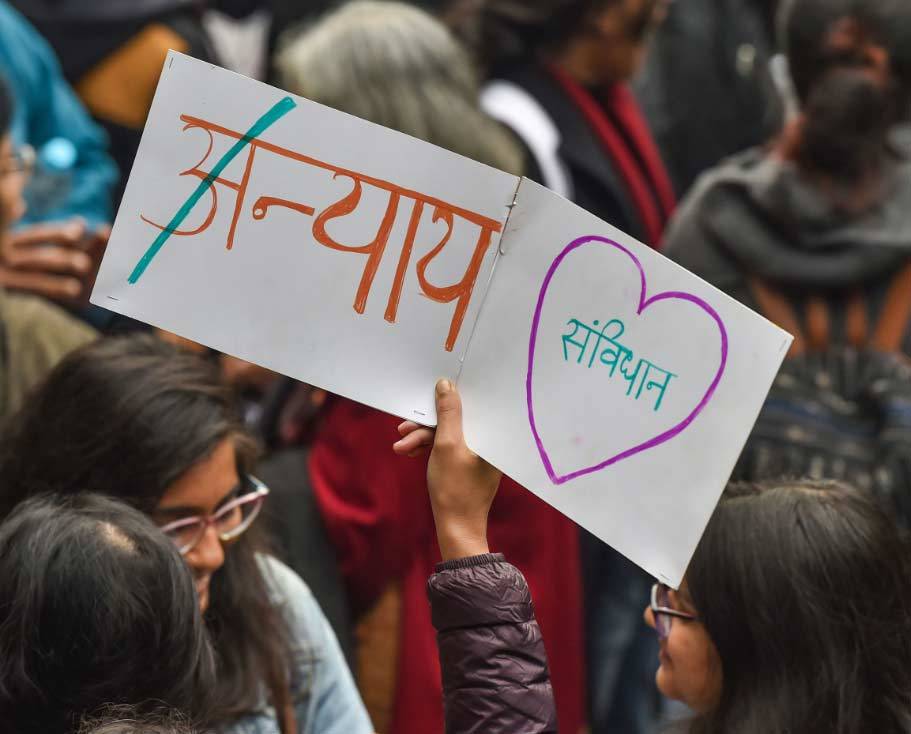 अन्याय
संविधान